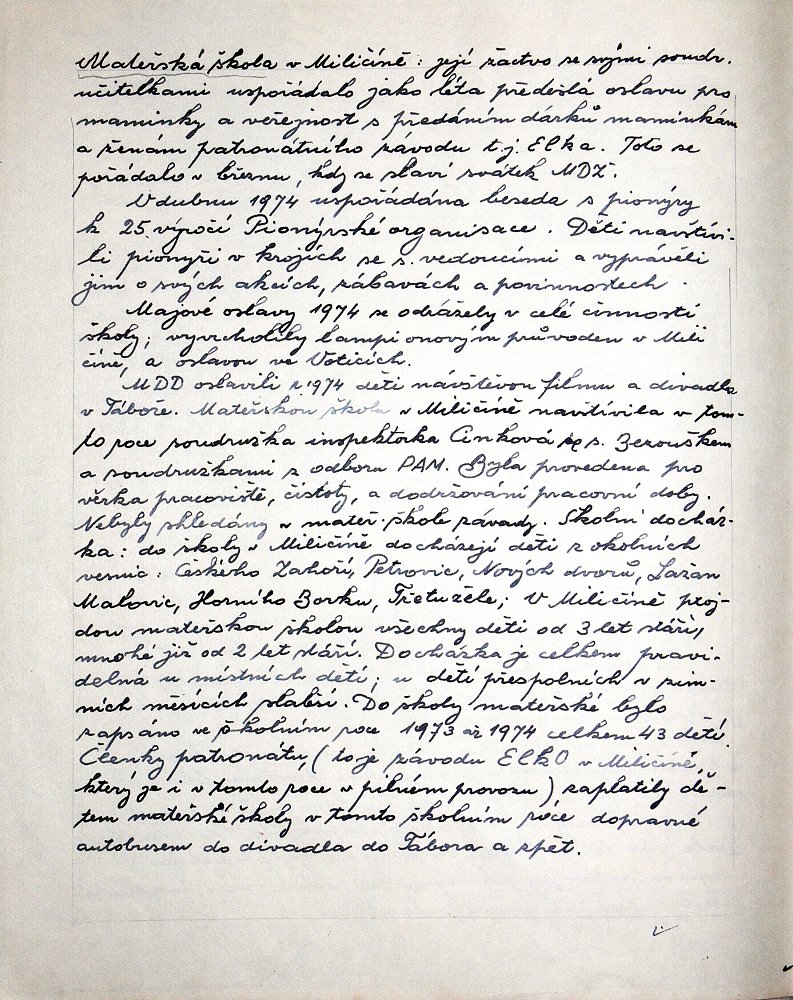 Mateřská škola v Miličíně: její žactvo se svými soudr.
učitelkami uspořádalo jako léta předešlá oslavu pro
maminky a veřejnost s předáním dárků maminkám
a ženám patronátního závodu t.j. Elka. Toto se
pořádalo v březnu, kdy se slaví svátek MDŽ.
V dubnu 1974 uspořádána beseda s pionýry
k 25 výročí Pionýrské organisace. Děti navštívi-
li pionýři v krojích se s. vedoucími a vyprávěli
jim o svých akcích, zábavách a povinnostech.
Majové oslavy 1974 se odrážely v celé činnosti
školy; vyvrcholily lampionovým průvodem v Mili
číně, a oslavou ve Voticích.
MDD oslavili r. 1974 děti návštěvou filmu a divadla
v Táboře. Mateřskou školu v Miličíně navštívila v tom-
to roce soudružka inspektorka Cinková se s. Bezouškem
a soudružkami z odboru PAM. Byla provedena pro
věrka pracoviště, čistoty, a dodržování pracovní doby.
Nebyly shledány v mateř. škole závady. Školní docház-
ka: do školy v Miličíně docházejí děti z okolních
vesnic: Českého Zahoří, Petrovic, Nových dvorů, Lažan
Malovic, Horního Borku, Třetužele; V Miličíně proj-
dou mateřskou školou všechny děti od 3 let stáří,
mnohé již od 2 let stáří. Docházka je celkem pravi-
delná u místních dětí; u dětí přespolních v zim-
ních měsících slabší. Do školy mateřské bylo
zapsáno ve školním roce 1973 až 1974 celkem 43 dětí.
Členky patronátu, (to je závodu ELKO v Miličíně,
který je i v tomto roce v pilném provozu) zaplatily dě-
tem mateřské školy v tomto školním roce dopravné
autobusem do divadla do Tábora a zpět.